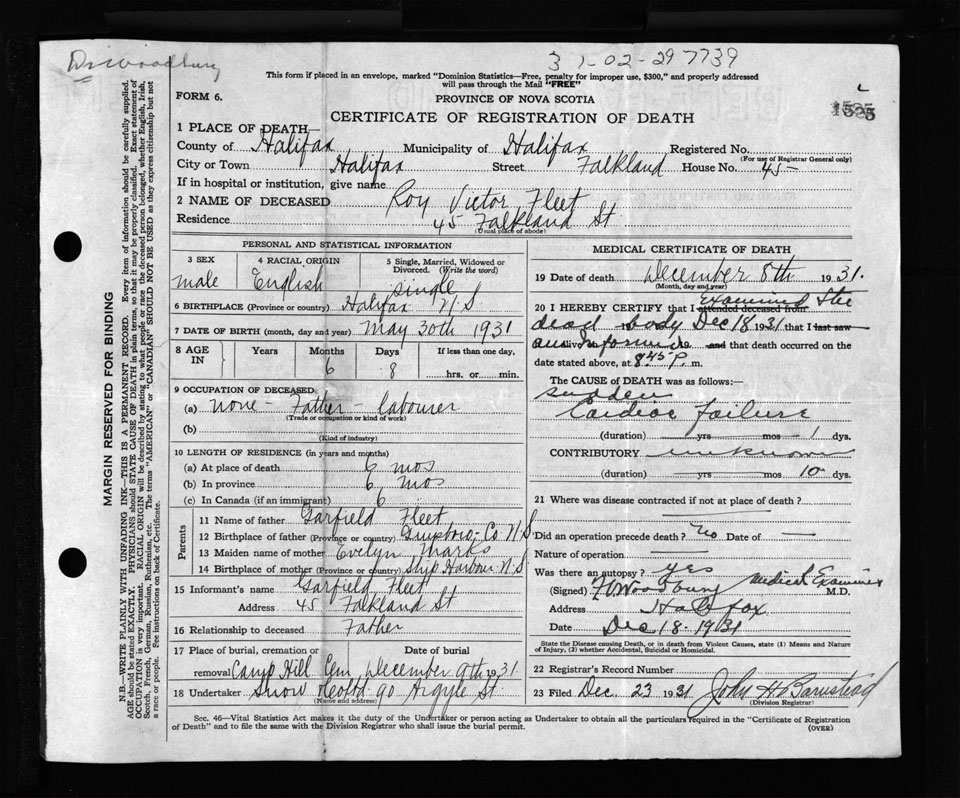 Dr Woodbury
3 1-02-29 7739
This form if placed in an envelope, marked "Dominion Statistics—Free, penalty for improper use, $300," and properly addressed
will pass through the Mail "FREE"
FORM 6.
PROVINCE OF NOVA SCOTIA
CERTIFICATE OF REGISTRATION OF DEATH
1 PLACE OF DEATH—
County of Halifax Municipality of Halifax Registered No.
(For use of Registrar General only)
City or Town Halifax Street Falkland House No. 45
If in hospital or institution, give name
2 NAME OF DECEASED Roy Victor Fleet
Residence 45 Falkland St
(Usual place of abode)
MARGIN RESERVED FOR BINDING
N.B.—WRITE PLAINLY WITH UNFADING INK—THIS IS A PERMANENT RECORD. Every item of information should be carefully supplied.
AGE should be stated EXACTLY. PHYSICIANS should STATE CAUSE OF DEATH in plain terms, so that it may be properly classified. Exact statement of
OCCUPATION is very important. RACIAL ORIGIN will be described by stating to what people or race the deceased person belonged, whether English, Irish,
Scotch, French, German, Russian, Ruthenian, etc. The terms "AMERICAN" or "CANADIAN" SHOULD NOT BE USED as they express citizenship but not
a race or people. See instructions on back of Certificate.
PERSONAL AND STATISTICAL INFORMATION
3 SEX
male
4 RACIAL ORIGIN
English
5 Single, Married, Widowed or
Divorced. (Write the word)
single
6 BIRTHPLACE (Province or country) Halifax N S
7 DATE OF BIRTH (month, day and year) May 30th 1931
8 AGE IN
Years Months Days If less than one day,
6 8 hrs. or min.
9 OCCUPATION OF DECEASED
(a) none - Father - labourer
(Trade or occupation or kind of work)
(b)
(Kind of industry)
10 LENGTH OF RESIDENCE (in years and months)
(a) At place of death 6 mos
(b) In province 6 mos
(c) In Canada (if an immigrant) 6
Parents
11 Name of father Garfield Fleet
12 Birthplace of father (Province or country) Co N.S
13 Maiden name of mother Evelyn Marks
14 Birthplace of mother (Province or country) Ship Harbour N.S
15 Informant's name Garfield Fleet
Address 45 Falkland St
16 Relationship to deceased Father
17 Place of burial, cremation or Date of burial
removal Camp Hill Cem December 9th 1931
18 Undertaker Snow & Co Ltd 90 Argyle St.
(Name and address)
MEDICAL CERTIFICATE OF DEATH
19 Date of death December 8th 1931.
(Month, day and year)
20 I HEREBY CERTIFY that I attended deceased from examined the
dead body Dec 18 1931 that I last saw
alive and that death occurred on the
date stated above, at 8.45 P. m.
The CAUSE of DEATH was as follows:
sudden
Cardiac failure
(duration) yrs mos 1 dys.
CONTRIBUTORY unknown
(duration) yrs mos 10 dys.
21 Where was disease contracted if not at place of death?
Did an operation precede death? No Date of
Nature of operation
Was there an autopsy? yes
(Signed) Woodbury Medical Examiner M.D.
Address Halifax
Date Dec 18 - 1931
State the Disease causing Death, or in death from Violent Causes, state (1) Means and Nature
of Injury, (2) whether Accidental, Suicidal or Homicidal.
22 Registrar's Record Number
23 Filed Dec 23 1931 John H Barnstead
(Division Registrar)
Sec. 46—Vital Statistics Act makes it the duty of the Undertaker or person acting as Undertaker to obtain all the particulars required in the "Certificate of Registration
of Death" and to file the same with the Division Registrar who shall issue the burial permit.
(OVER)